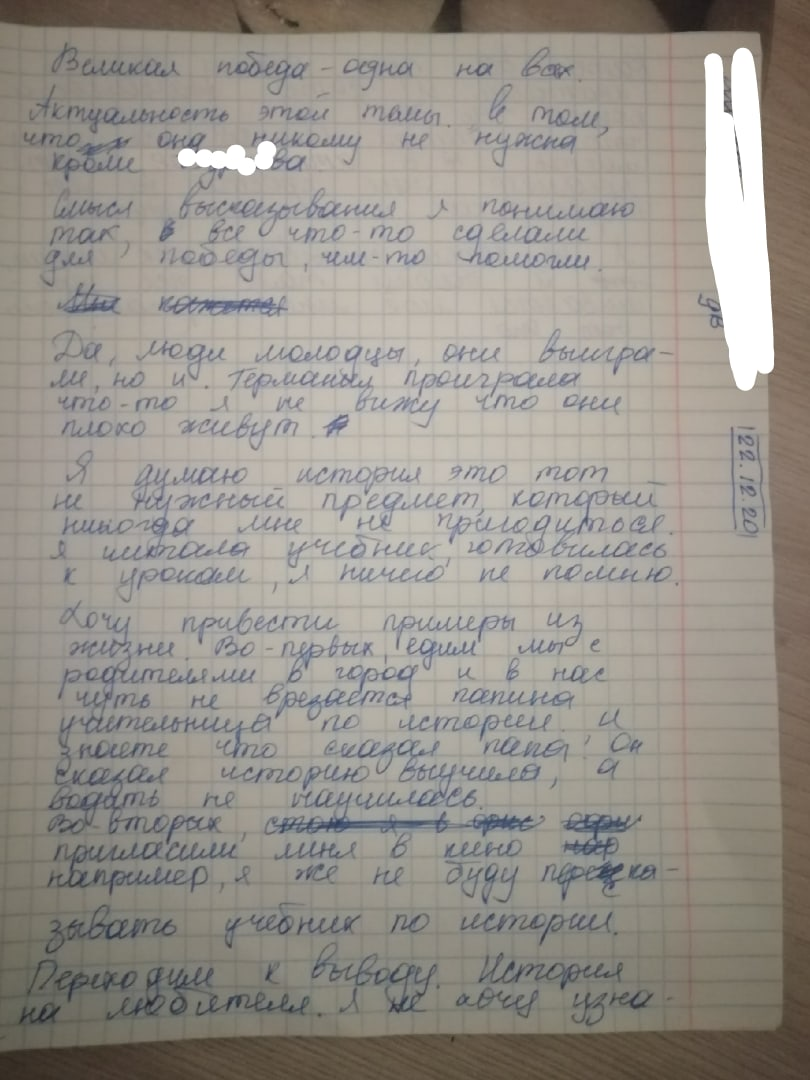 Великая победа - одна на всех.
Актуальность этой темы. В том,
что она никому не нужна
кроми
Смысл высказывания я понимаю
так, в все что-то сделали
для победы, чем-то помогли.
Мне кажется
Да, люди молодцы, они выигра-
ли, но и. Германия проиграла
что-то я не вижу что они
плохо живут.
Я думаю история это тот
не нужный предмет, который
никогда мне не пригодиться.
я читала учебник, готовилась
к урокам, я ничего не помню.
Хочу привести примеры из
жизни. Во-первых, едим мы с
родителями в город и в нас
чуть не врезается папина
учительница по истории. и
знаете что сказал папа? Он
сказал историю выучила, а
водить не научилась.
Во-вторых, стою я в
пригласили миня в кино
например, я же не буду переска-
зывать учебник по истории.
Переходим к выводу. История
на любителя. Я не хочу узна-
22.12.20